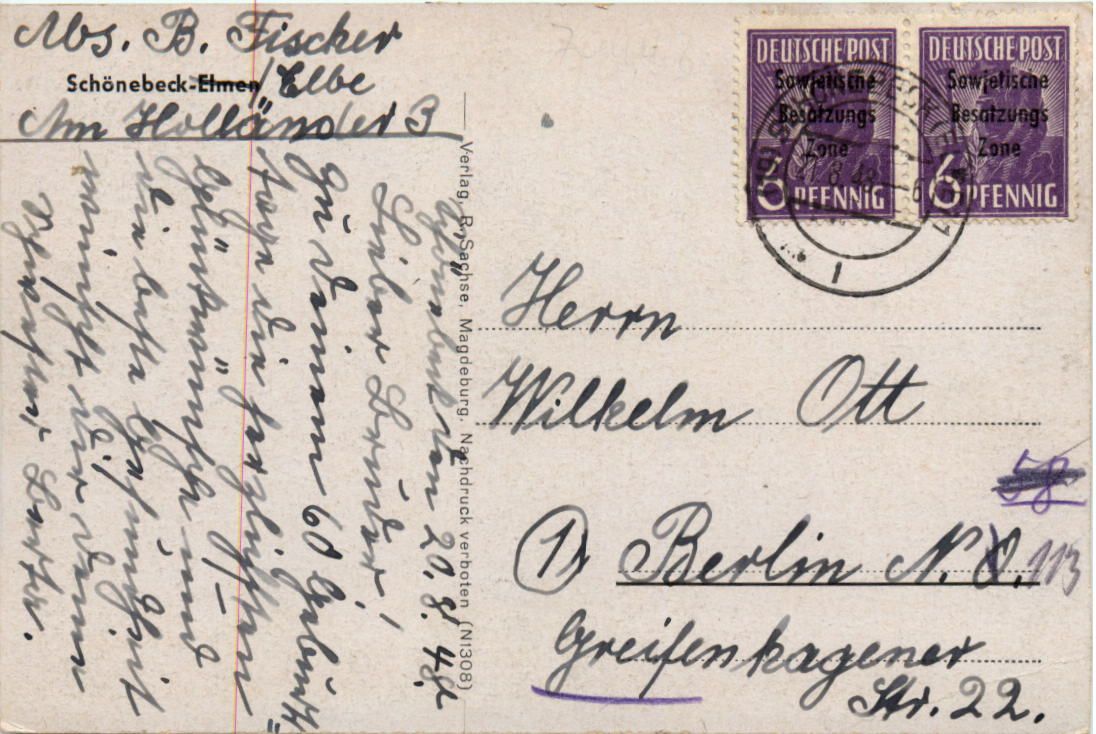 Abs. B. Fischer
Schönebeck-Elmen / Elbe
Am Holländer 3
Schönebeck den 20. 8. 48.
Lieber Bruder!
Zu Deinem 60 Geburts=
tage die herzlichsten
Glückwünsche und
die beste Gesundheit
wünscht Dir Deine
Schwester Berta.
Verlag, R. Sachse, Magdeburg. Nachdruck verboten (N1308)
DEUTSCHE POST
Sowjetische
Besatzungs
Zone
6 PFENNIG
DEUTSCHE POST
Sowjetische
Besatzungs
Zone
6 PFENNIG
Herrn
Wilhelm Ott
58
(1) Berlin N. 113
Greifenhagener
Str. 22.